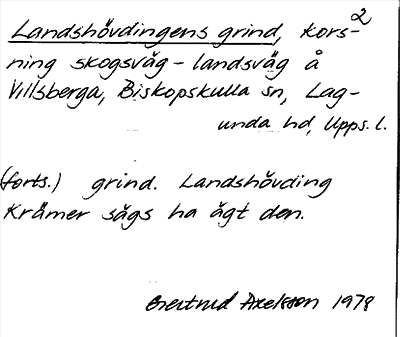 Landshövdingens grind, Kors- 2
ning skogsväg - landsväg å
Villsberga, Biskopskulla sn, Lag-
unda hd, Upps. l.
(forts.) grind. Landshövding
Krämer sägs ha ägt den.
Gertrud Axelsson 1978